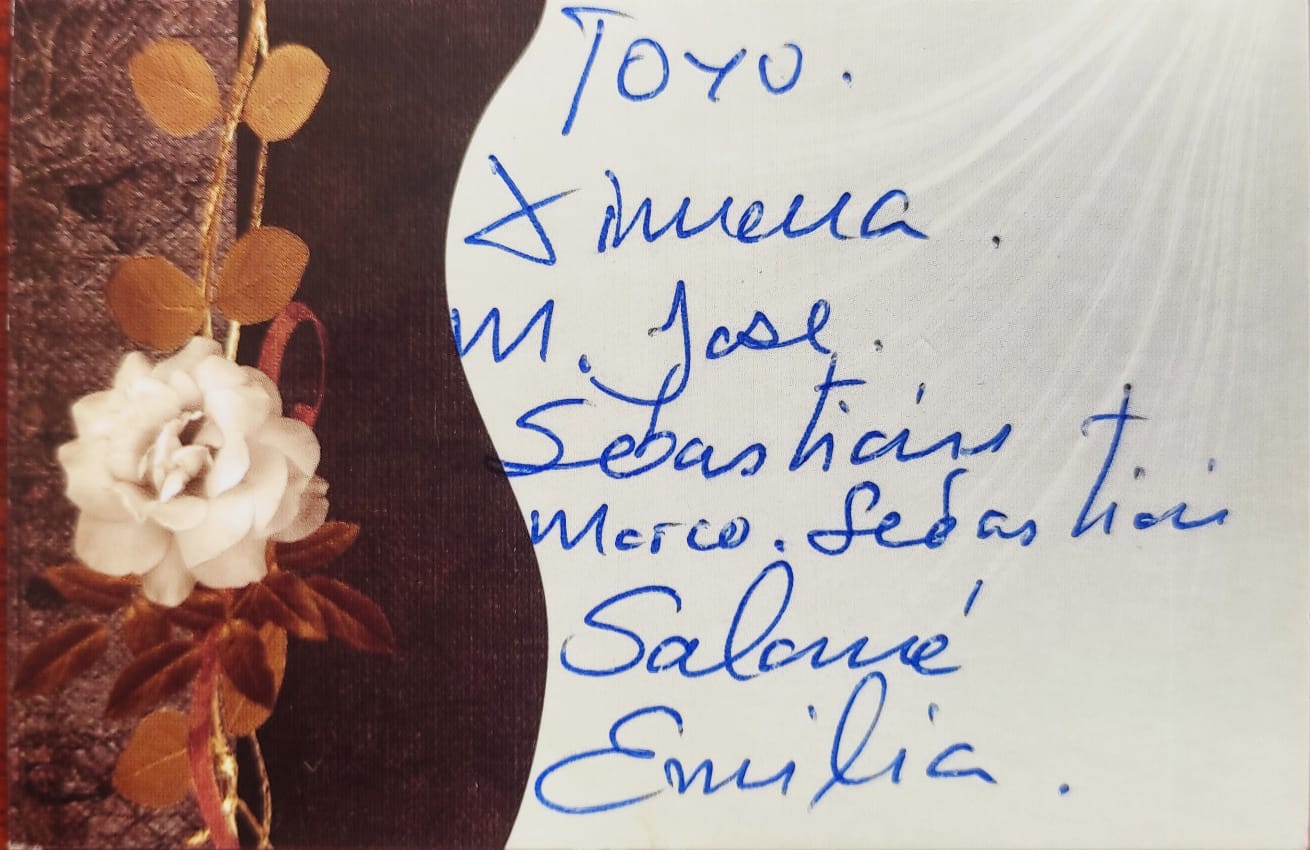 TOYO.
Ximena.
M. José.
Sebastián
Marco. Sebastián
Salomé
Emilia.